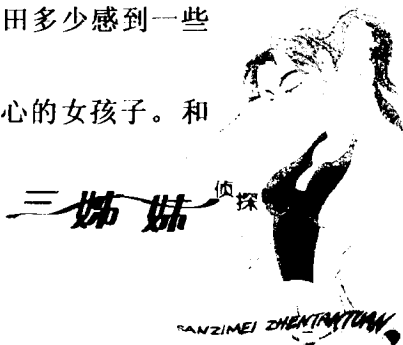 田多少感到一些
心的女孩子。和
三姊妹侦探
SANZIMEI ZHENTANTUAN